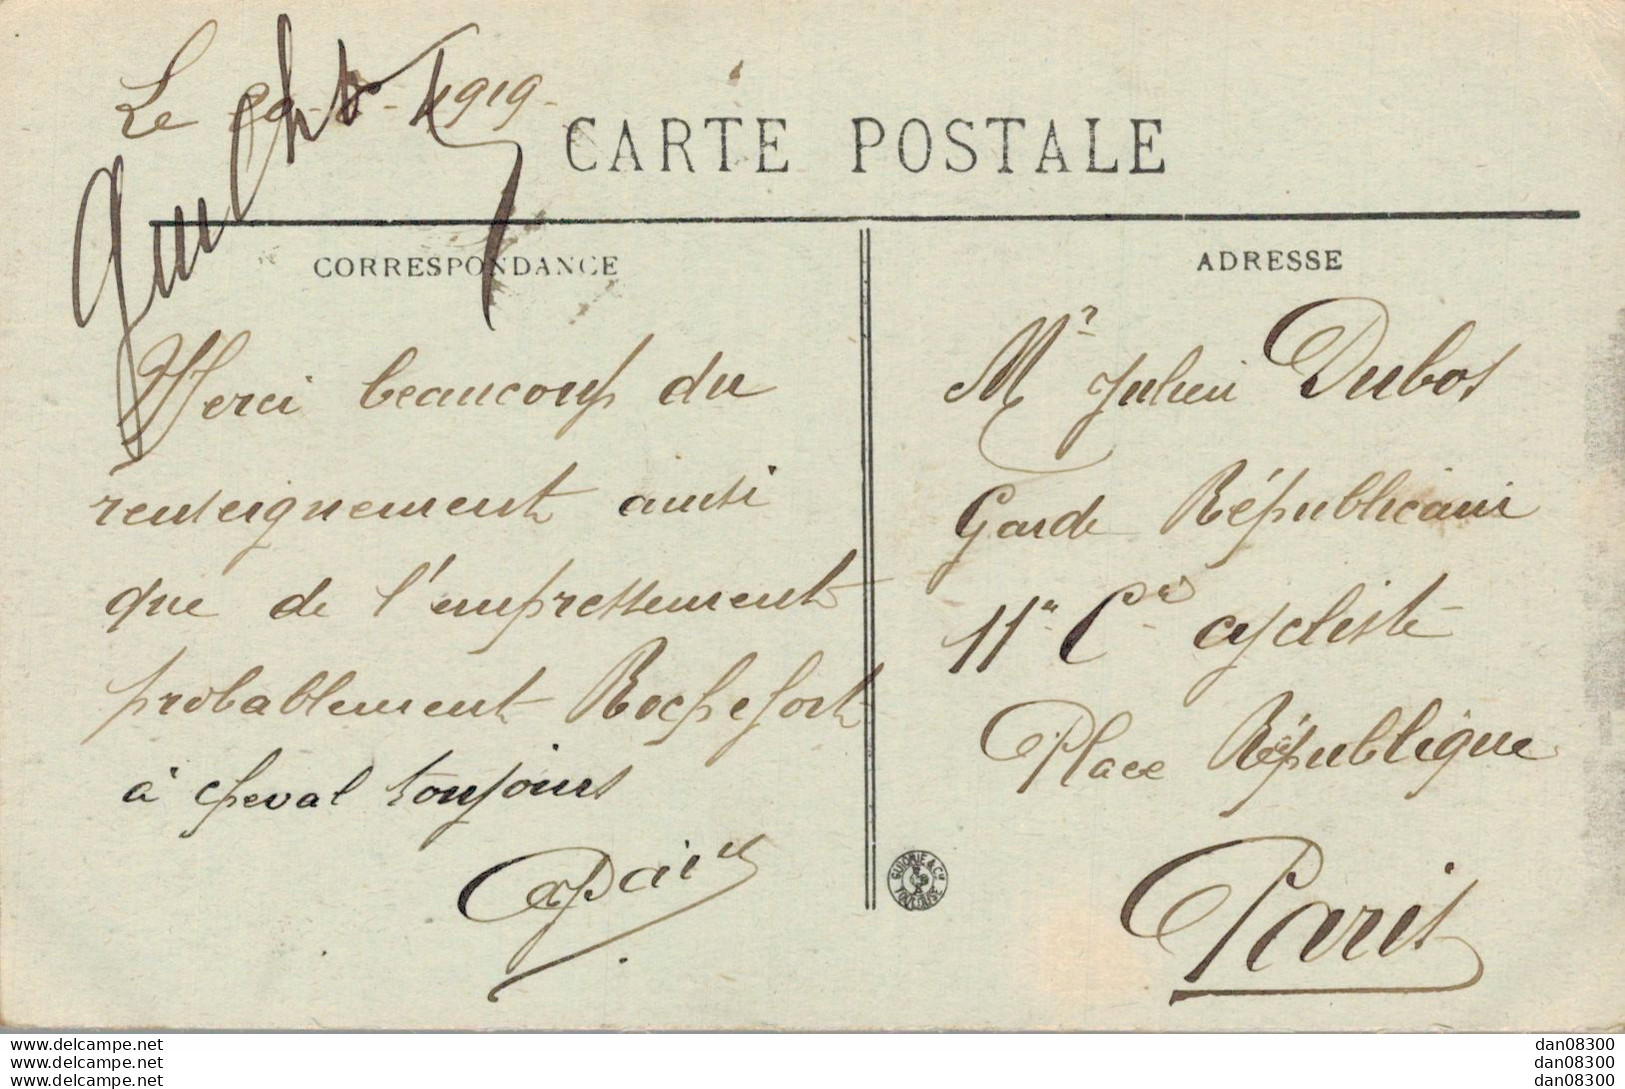 Le 1919.
CARTE POSTALE
CORRESPONDANCE
ADRESSE
Merci beaucoup du
renseignement ainsi
que de l'empressement
probablement Rochefort
à cheval toujours
Mr Julien Dubos
Garde Républicain
11e Cie cycliste
Place République
Paris
TOULOUSE
www.delcampe.net
www.delcampe.net
www.delcampe.net
dan08300
dan08300
dan08300